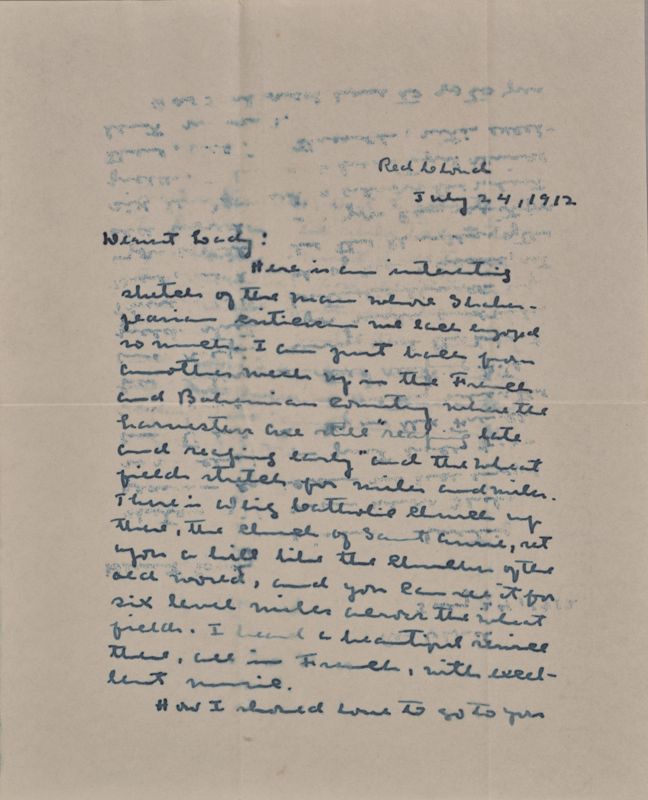 Red Cloud
July 24, 1912
Dearest Lady:
Here is an interesting
sketch of the man whose Shakes-
pearian criticism we all enjoyed
so much. I am just back from
another week up in the French
and Bohemian country where the
harvesters are still "reaping late
and reaping early" and the wheat
fields stretch for miles and miles.
There is a big Catholic Church up
there, the Church of Saint Anne, set
upon a hill like the Churches of the
old world, and you can see it for
six level miles across the wheat
fields. I heard a beautiful service
there, all in French, with excel-
lent music.
How I should love to go to you